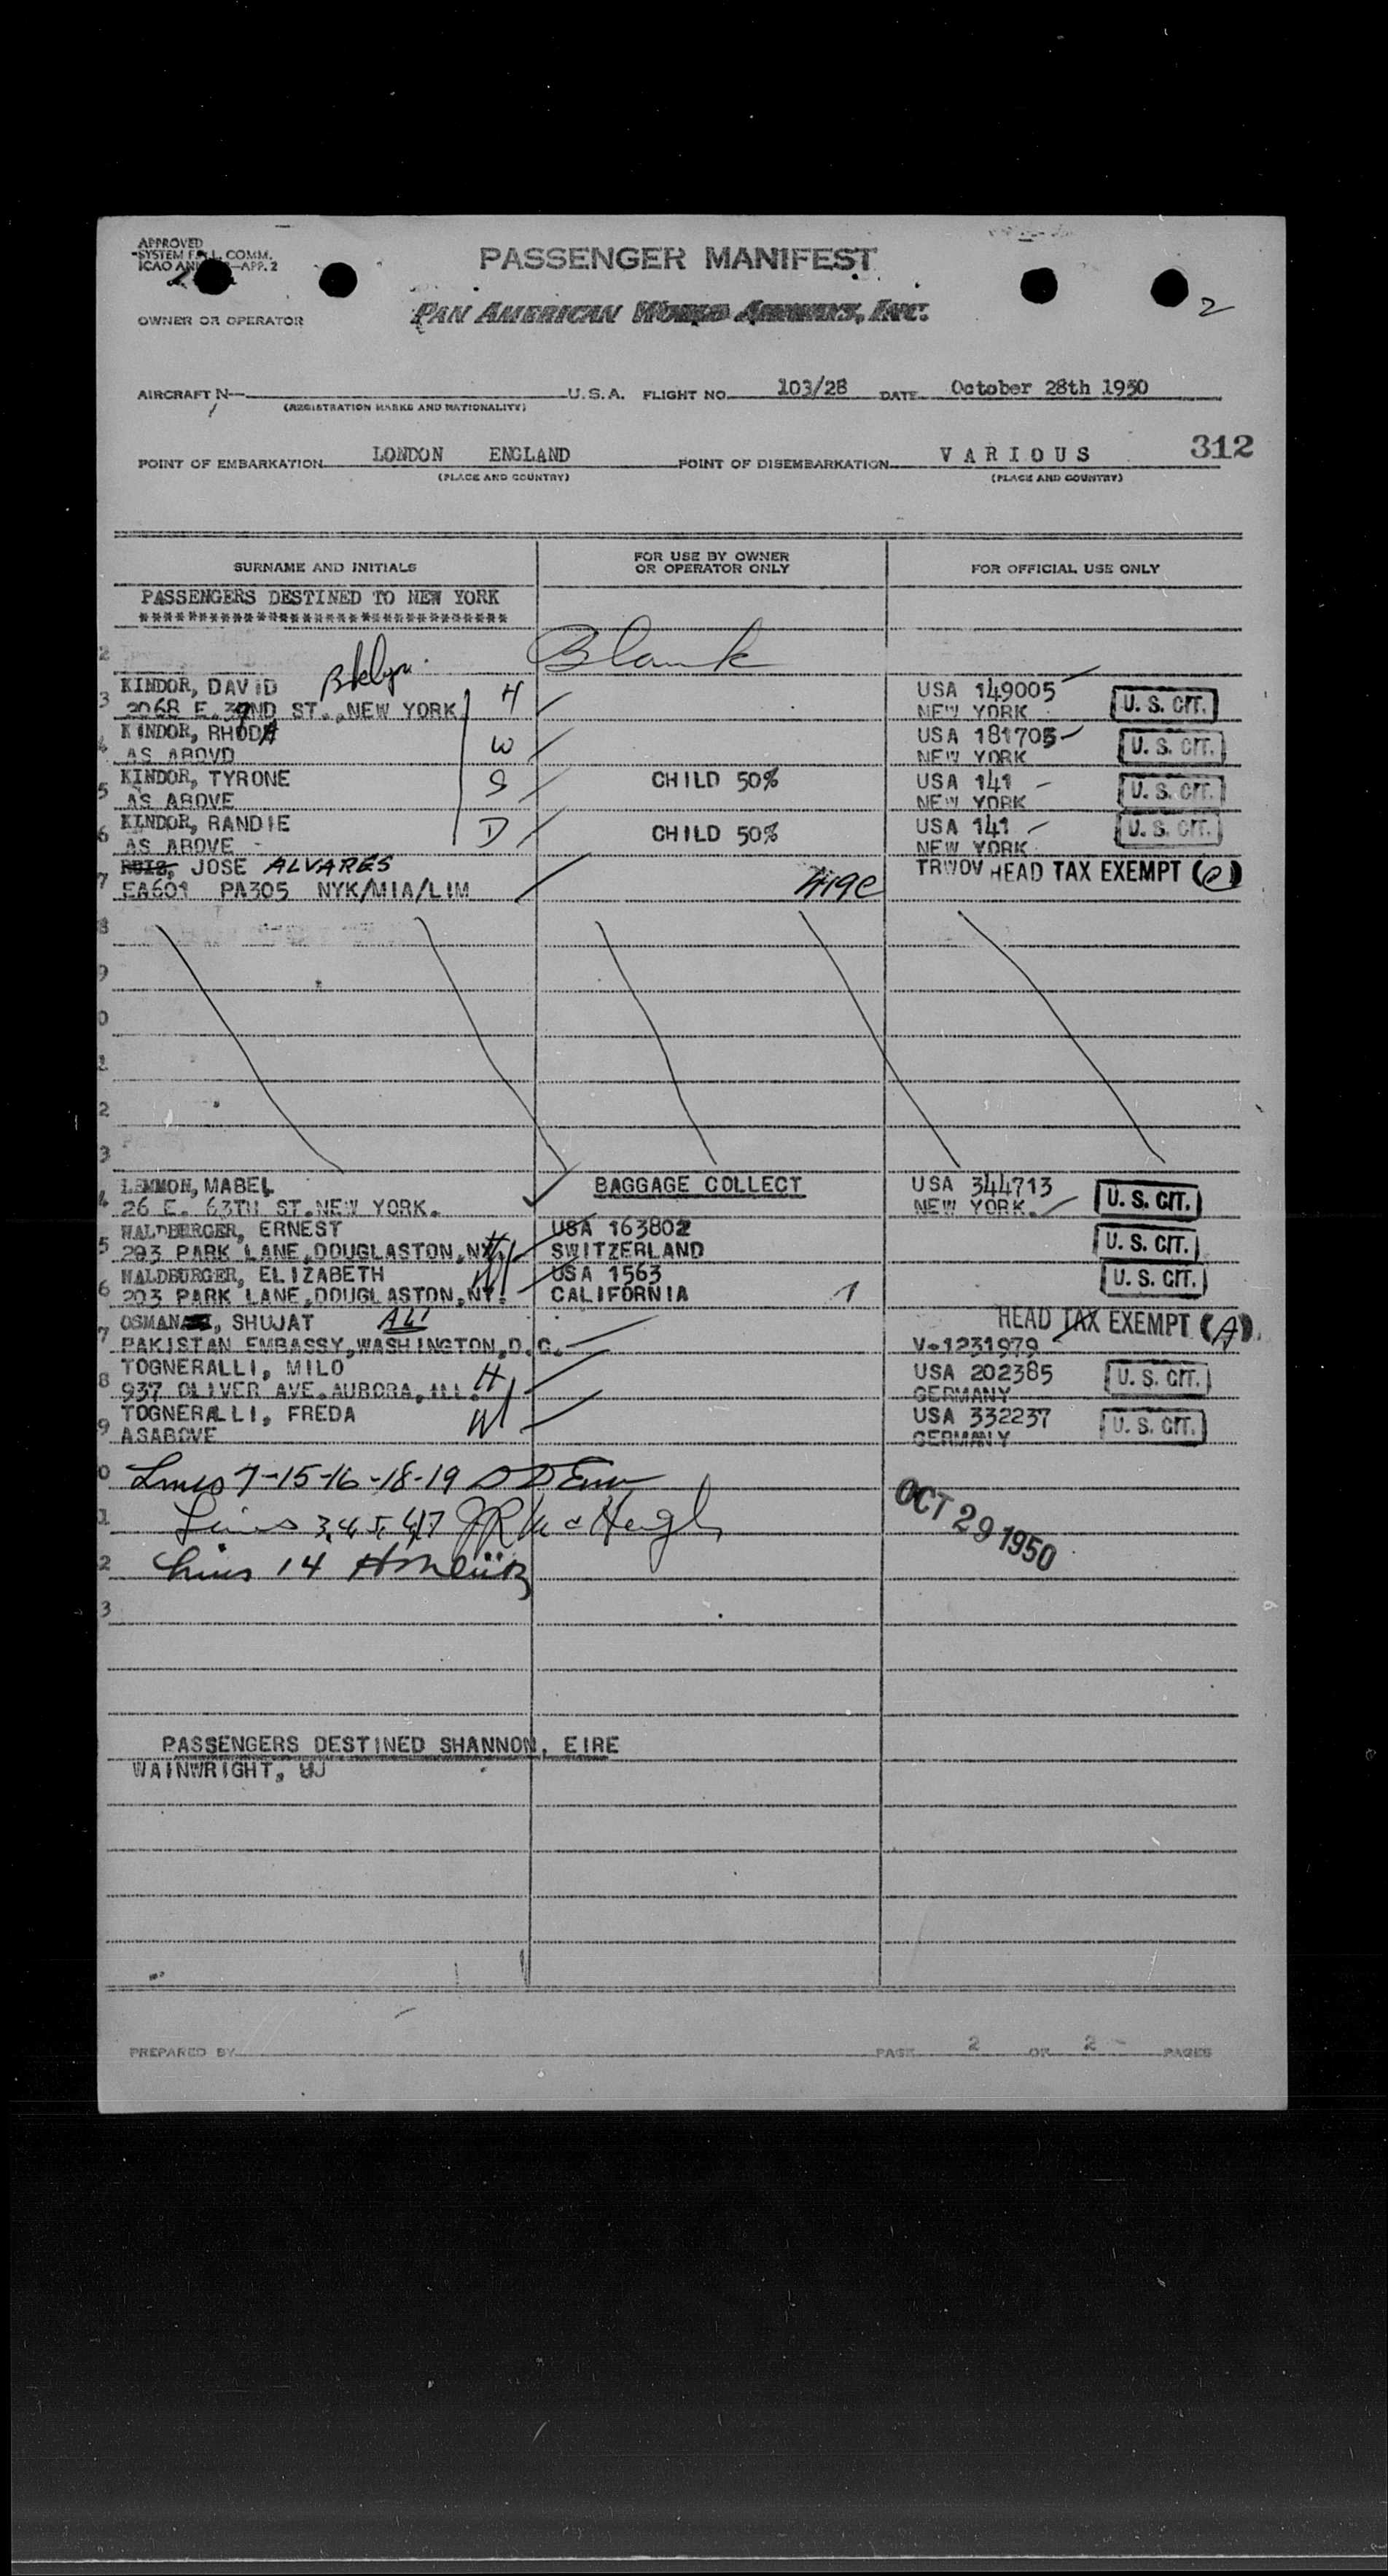 APPROVED
SYSTEM COMM.
ICAO APP. 2
PASSENGER MANIFEST
PAN AMERICAN WORLD AIRWAYS, INC.
2
OWNER OR OPERATOR
AIRCRAFT N— U.S.A. FLIGHT NO. 103/28 DATE October 28th 1950
(REGISTRATION MARKS AND NATIONALITY)
312
POINT OF EMBARKATION LONDON ENGLAND POINT OF DISEMBARKATION VARIOUS
(PLACE AND COUNTRY) (PLACE AND COUNTRY)
SURNAME AND INITIALS FOR USE BY OWNER OR OPERATOR ONLY FOR OFFICIAL USE ONLY
PASSENGERS DESTINED TO NEW YORK
**********************************
2 Blank
KINDOR, DAVID Bklyn. H USA 149005 U. S. CIT.
3 2068 E. ND ST., NEW YORK NEW YORK
KINDOR, RHODA W USA 181705 U. S. CIT.
4 AS ABOVD NEW YORK
KINDOR, TYRONE S CHILD 50% USA 141 U. S. CIT.
5 AS ABOVE NEW YORK
KINDOR, RANDIE D CHILD 50% USA 141 U. S. CIT.
6 AS ABOVE NEW YORK
JOSE ALVARES TRWOV HEAD TAX EXEMPT (e)
7 EA601 PA305 NYK/MIA/LIM 419e
8
9
0
1
2
3
LEMMON, MABEL BAGGAGE COLLECT USA 344713 U. S. CIT.
4 26 E. 63TH ST.NEW YORK. NEW YORK.
WALDBERGER, ERNEST H USA 163802 U. S. CIT.
5 203 PARK LANE,DOUGLASTON,NY. SWITZERLAND
WALDBURGER, ELIZABETH W USA 1563 U. S. CIT.
6 203 PARK LANE,DOUGLASTON,NY. CALIFORNIA 1
OSMAN, SHUJAT ALI HEAD TAX EXEMPT (A)
7 PAKISTAN EMBASSY,WASHINGTON,D.C. V-1231979
TOGNERALLI, MILO H USA 202385 U. S. CIT.
8 937 OLIVER AVE.AURORA,ILL. GERMANY
TOGNERALLI, FREDA W USA 332237 U. S. CIT.
9 ASABOVE GERMANY
0 Lines 7-15-16-18-19
OCT 29 1950
1 Lines 3,4,5,6,17
2 Lines 14
3
PASSENGERS DESTINED SHANNON, EIRE
WAINWRIGHT, WJ
PREPARED BY PAGE 2 OF 2 PAGES